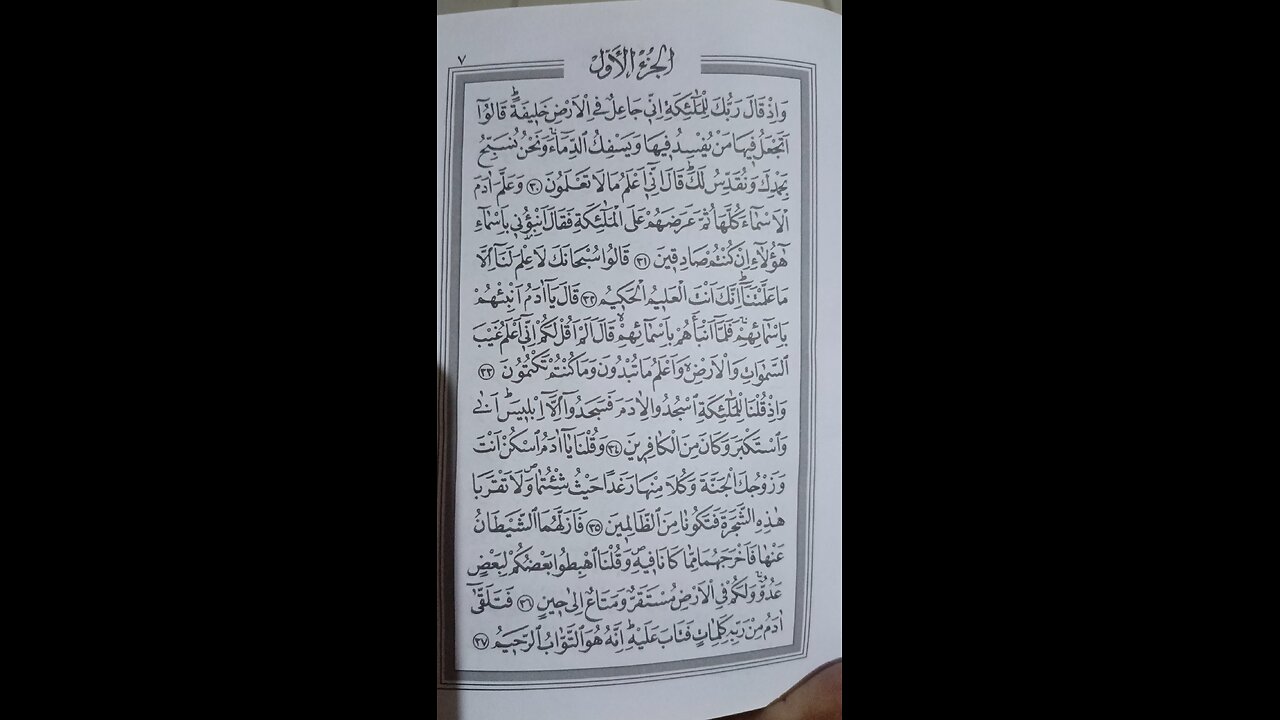 ٧
الجزء الأول
وَاِذْ قَالَ رَبُّكَ لِلْمَلٰٓئِكَةِ اِنّ۪ي جَاعِلٌ فِي الْاَرْضِ خَل۪يفَةًۜ قَالُٓوا
اَتَجْعَلُ ف۪يهَا مَنْ يُفْسِدُ ف۪يهَا وَيَسْفِكُ الدِّمَٓاءَۚ وَنَحْنُ نُسَبِّحُ
بِحَمْدِكَ وَنُقَدِّسُ لَكَۜ قَالَ اِنّ۪ٓي اَعْلَمُ مَا لَا تَعْلَمُونَ ﴿٣٠﴾ وَعَلَّمَ اٰدَمَ
الْاَسْمَٓاءَ كُلَّهَا ثُمَّ عَرَضَهُمْ عَلَى الْمَلٰٓئِكَةِ فَقَالَ اَنْبِؤُ۫ن۪ي بِاَسْمَٓاءِ
هٰٓؤُ۬لَٓاءِ اِنْ كُنْتُمْ صَادِق۪ينَ ﴿٣١﴾ قَالُوا سُبْحَانَكَ لَا عِلْمَ لَنَٓا اِلَّا
مَا عَلَّمْتَنَاۜ اِنَّكَ اَنْتَ الْعَل۪يمُ الْحَك۪يمُ ﴿٣٢﴾ قَالَ يَٓا اٰدَمُ اَنْبِئْهُمْ
بِاَسْمَٓائِهِمْۚ فَلَمَّٓا اَنْبَاَهُمْ بِاَسْمَٓائِهِمْۙ قَالَ اَلَمْ اَقُلْ لَكُمْ اِنّ۪ٓي اَعْلَمُ غَيْبَ
السَّمٰوَاتِ وَالْاَرْضِۙ وَاَعْلَمُ مَا تُبْدُونَ وَمَا كُنْتُمْ تَكْتُمُونَ ﴿٣٣﴾
وَاِذْ قُلْنَا لِلْمَلٰٓئِكَةِ اسْجُدُوا لِاٰدَمَ فَسَجَدُٓوا اِلَّٓا اِبْل۪يسَۜ اَبٰى
وَاسْتَكْبَرَ وَكَانَ مِنَ الْكَافِر۪ينَ ﴿٣٤﴾ وَقُلْنَا يَٓا اٰدَمُ اسْكُنْ اَنْتَ
وَزَوْجُكَ الْجَنَّةَ وَكُلَا مِنْهَا رَغَدًا حَيْثُ شِئْتُمَاۖ وَلَا تَقْرَبَا
هٰذِهِ الشَّجَرَةَ فَتَكُونَا مِنَ الظَّالِم۪ينَ ﴿٣٥﴾ فَاَزَلَّهُمَا الشَّيْطَانُ
عَنْهَا فَاَخْرَجَهُمَا مِمَّا كَانَا ف۪يهِۖ وَقُلْنَا اهْبِطُوا بَعْضُكُمْ لِبَعْضٍ
عَدُوٌّۚ وَلَكُمْ فِي الْاَرْضِ مُسْتَقَرٌّ وَمَتَاعٌ اِلٰى ح۪ينٍ ﴿٣٦﴾ فَتَلَقّٰٓى
اٰدَمُ مِنْ رَبِّه۪ كَلِمَاتٍ فَتَابَ عَلَيْهِۜ اِنَّهُ هُوَ التَّوَّابُ الرَّح۪يمُ ﴿٣٧﴾